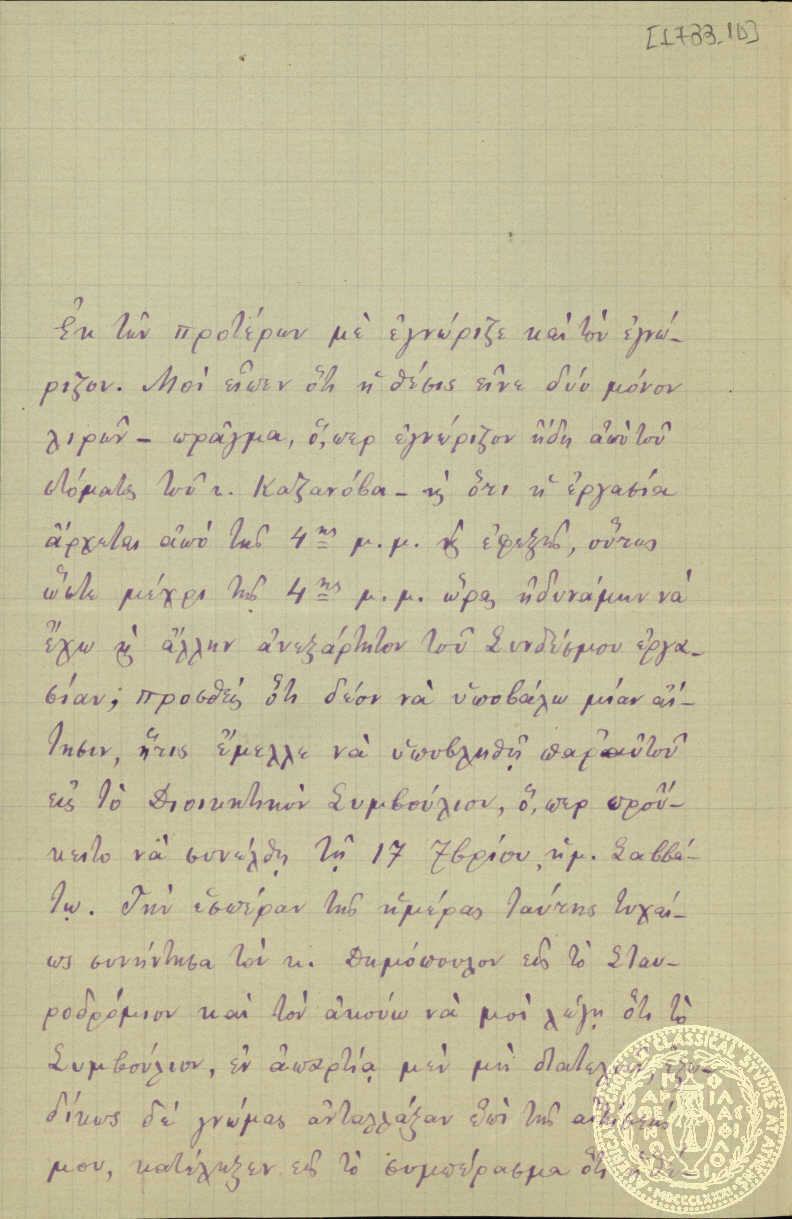 [1733_1D]
Ἐκ τῶν προτέρων μὲ ἐγνώριζε καὶ τὸν ἐγνώ-
ριζον. Μοὶ εἶπεν ὅτι ἡ θέσις εἶνε δύο μόνον
λιρῶν – πρᾶγμα, ὅ,περ ἐγνώριζον ἤδη ἀπὸ τοῦ
στόματος τοῦ κ. Καζανόβα – κ̀ ὅτι ἡ ἐργασία
ἄρχεται ἀπὸ τῆς 4ης μ.μ. κ̀ ἐφεξῆς, οὕτως
ὥστε μέχρι τῆς 4ης μ.μ. ὥρας ἠδυνάμην νὰ
ἔχω κ̀ ἄλλην ἀνεξάρτητον τοῦ Συνδέσμου ἐργα-
σίαν; προσθεὶς ὅτι δέον νὰ ὑποβάλω μίαν αἴ-
τησιν, ἥτις ἔμελλε νὰ ὑποβληθῇ παρ' αὐτοῦ
εἰς τὸ Διοικητικὸν Συμβούλιον, ὅ,περ προὔ-
κειτο νὰ συνέλθῃ τῇ 17 7βρίου, ἡμ. Σαββά-
τῳ. Τὴν ἑσπέραν τῆς ἡμέρας ταύτης τυχαί-
ως συνήντησα τὸν κ. Δημόπουλον εἰς τὸ Σταυ-
ροδρόμιον καὶ τὸν ἀκούω νὰ μοὶ λέγῃ ὅτι τὸ
Συμβούλιον, ἐν ἀπαρτίᾳ μὲν μὴ διατελοῦν,
δίκως δὲ γνώμας ἀνταλλάξαν ἐπὶ τῆς αἰτήσεώς
μου, κατέληξεν εἰς τὸ συμπέρασμα ὅτι ἡ θέ-
OF CLASSICAL STUDIES AT ATHENS
MDCCCLXXXI